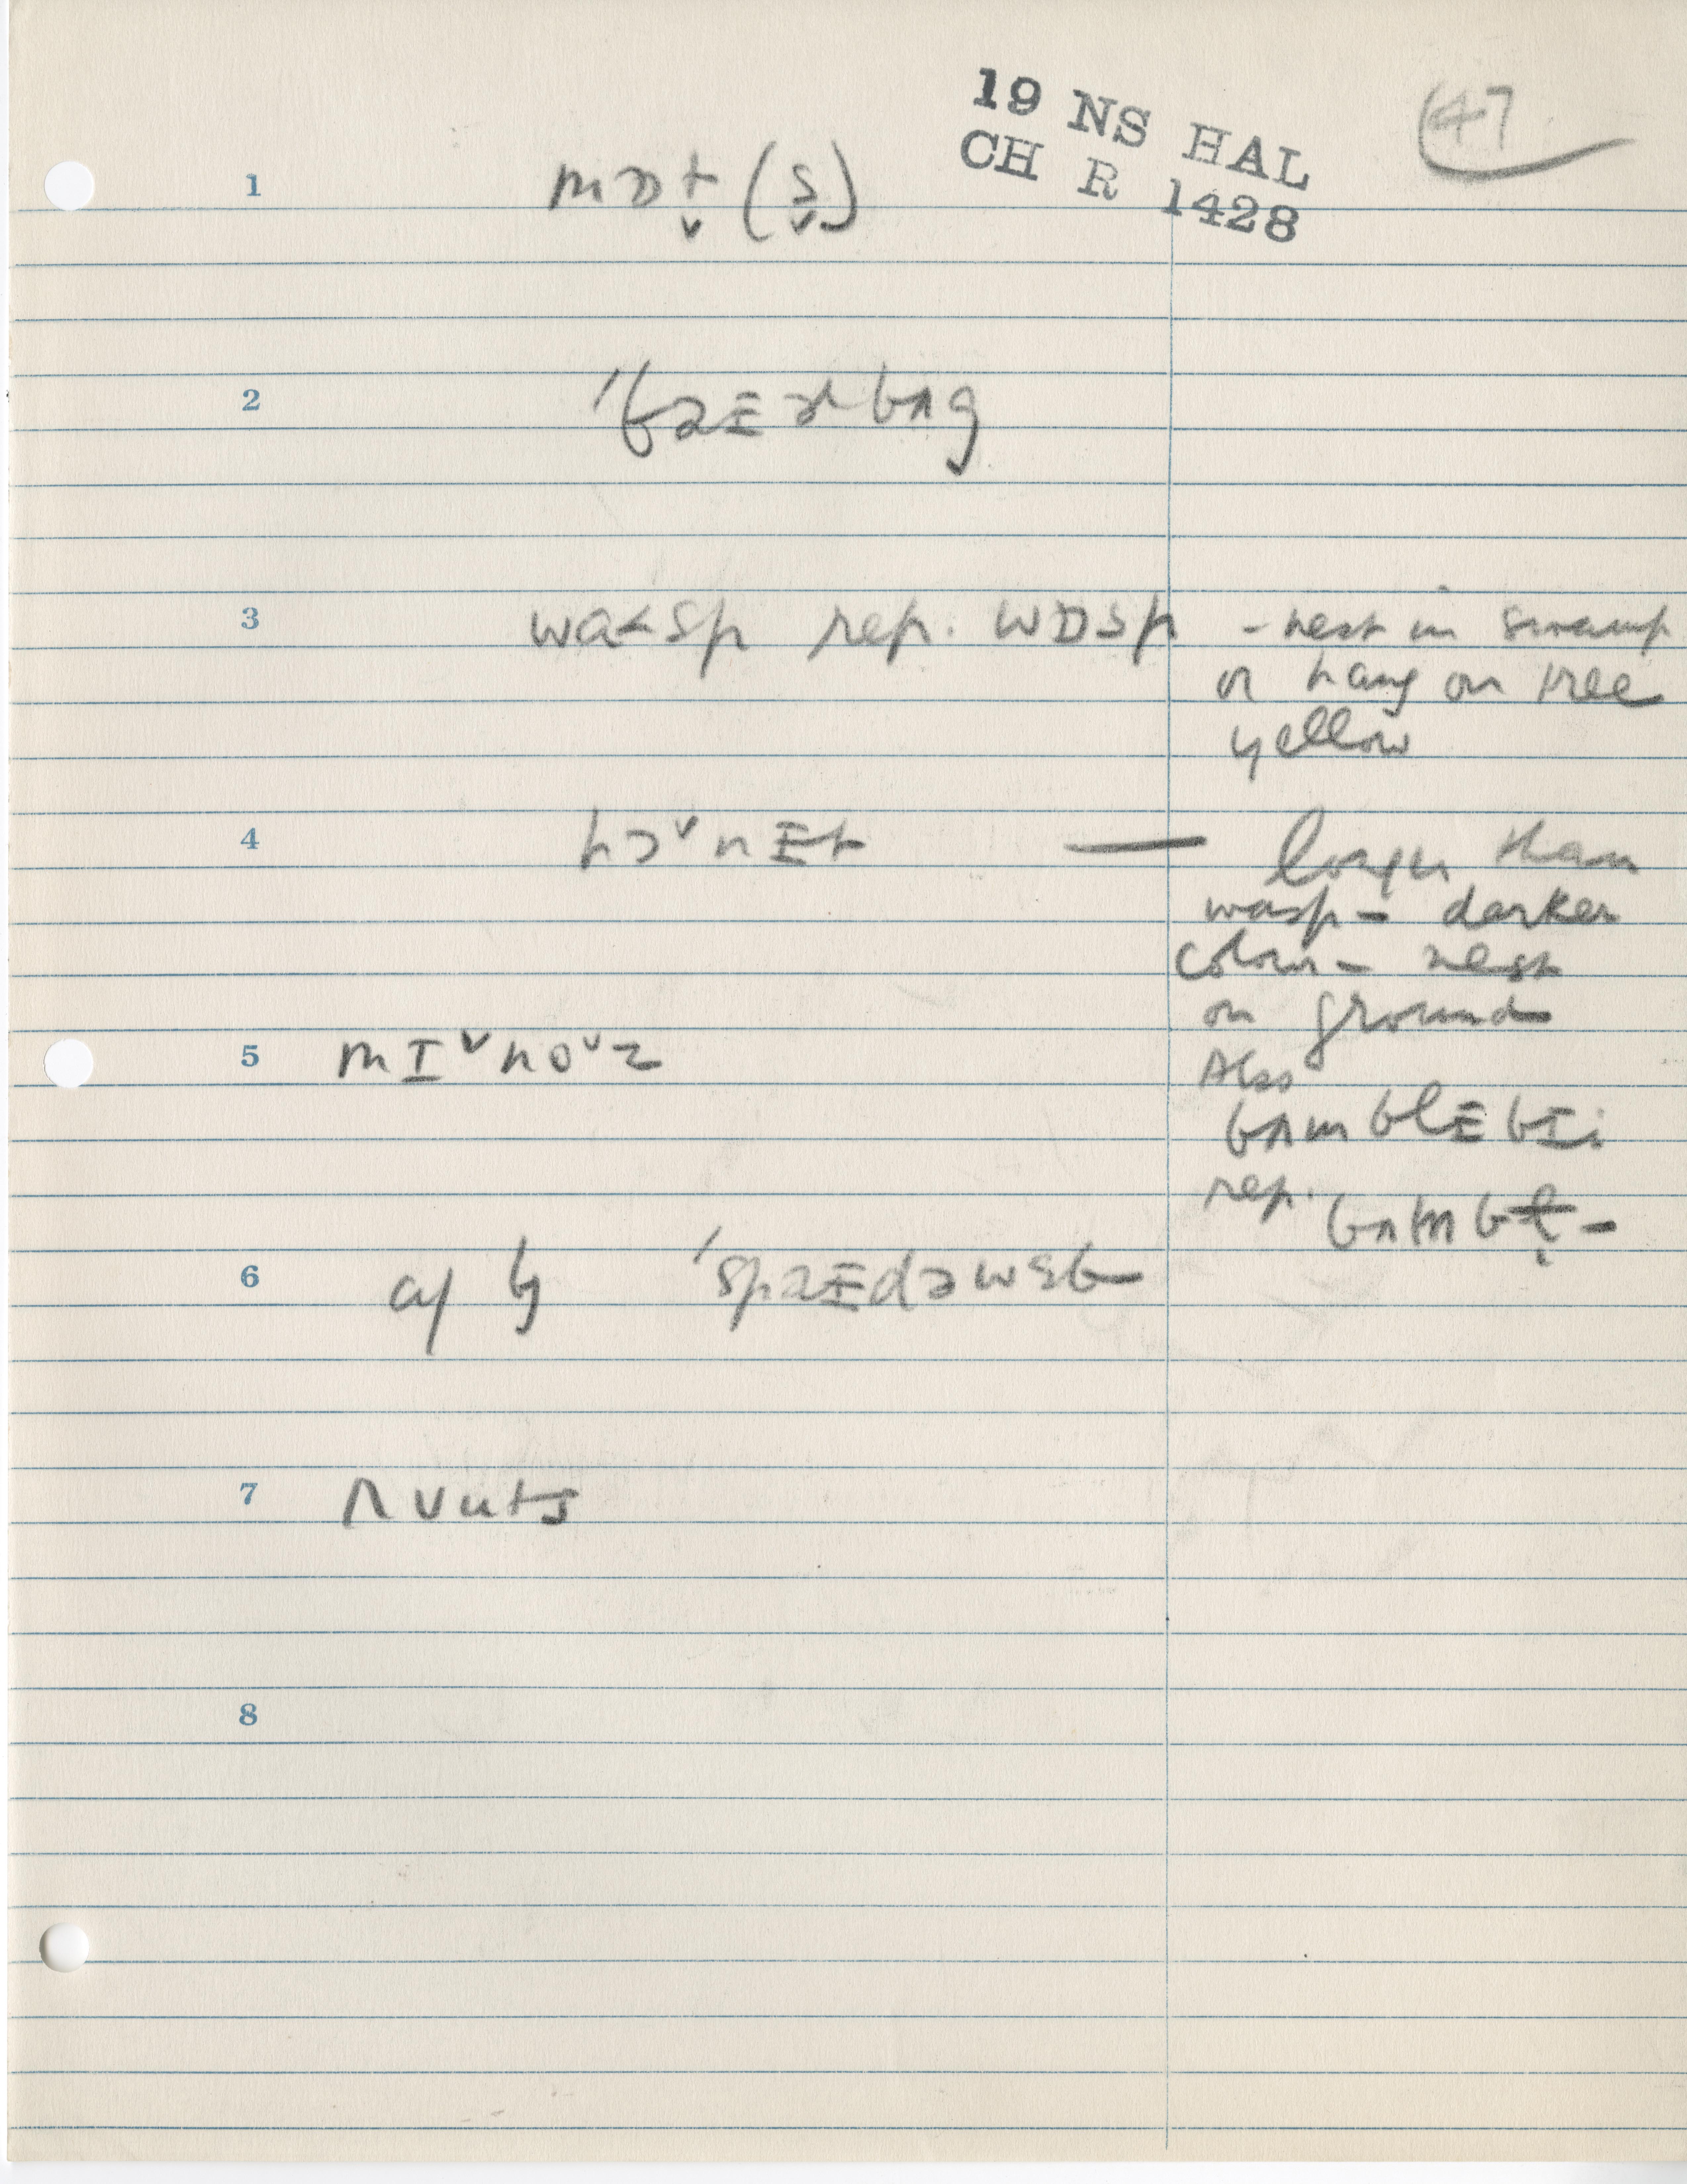 19 NS HAL
CH R 1428
47
1 mɒt̬(s̬)
2 ˈfaᵻɚbʌg
3 wa<sp rep. wɒsp - nest in swamp
or hang on tree
yellow
4 hɔ˅nᵻt — larger than
wasp - darker
colour - nest
on ground
5 mɪ˅no˅z
Also
bʌmblᵻbɪi
rep. bʌmbl̩ -
6 a/ b/ ˈspaᵻdəwɛb
7 ruuts
8